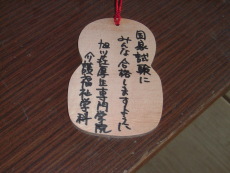 国家試験に
みんな合格しますように
旭川荘厚生専門学院
介護福祉学科